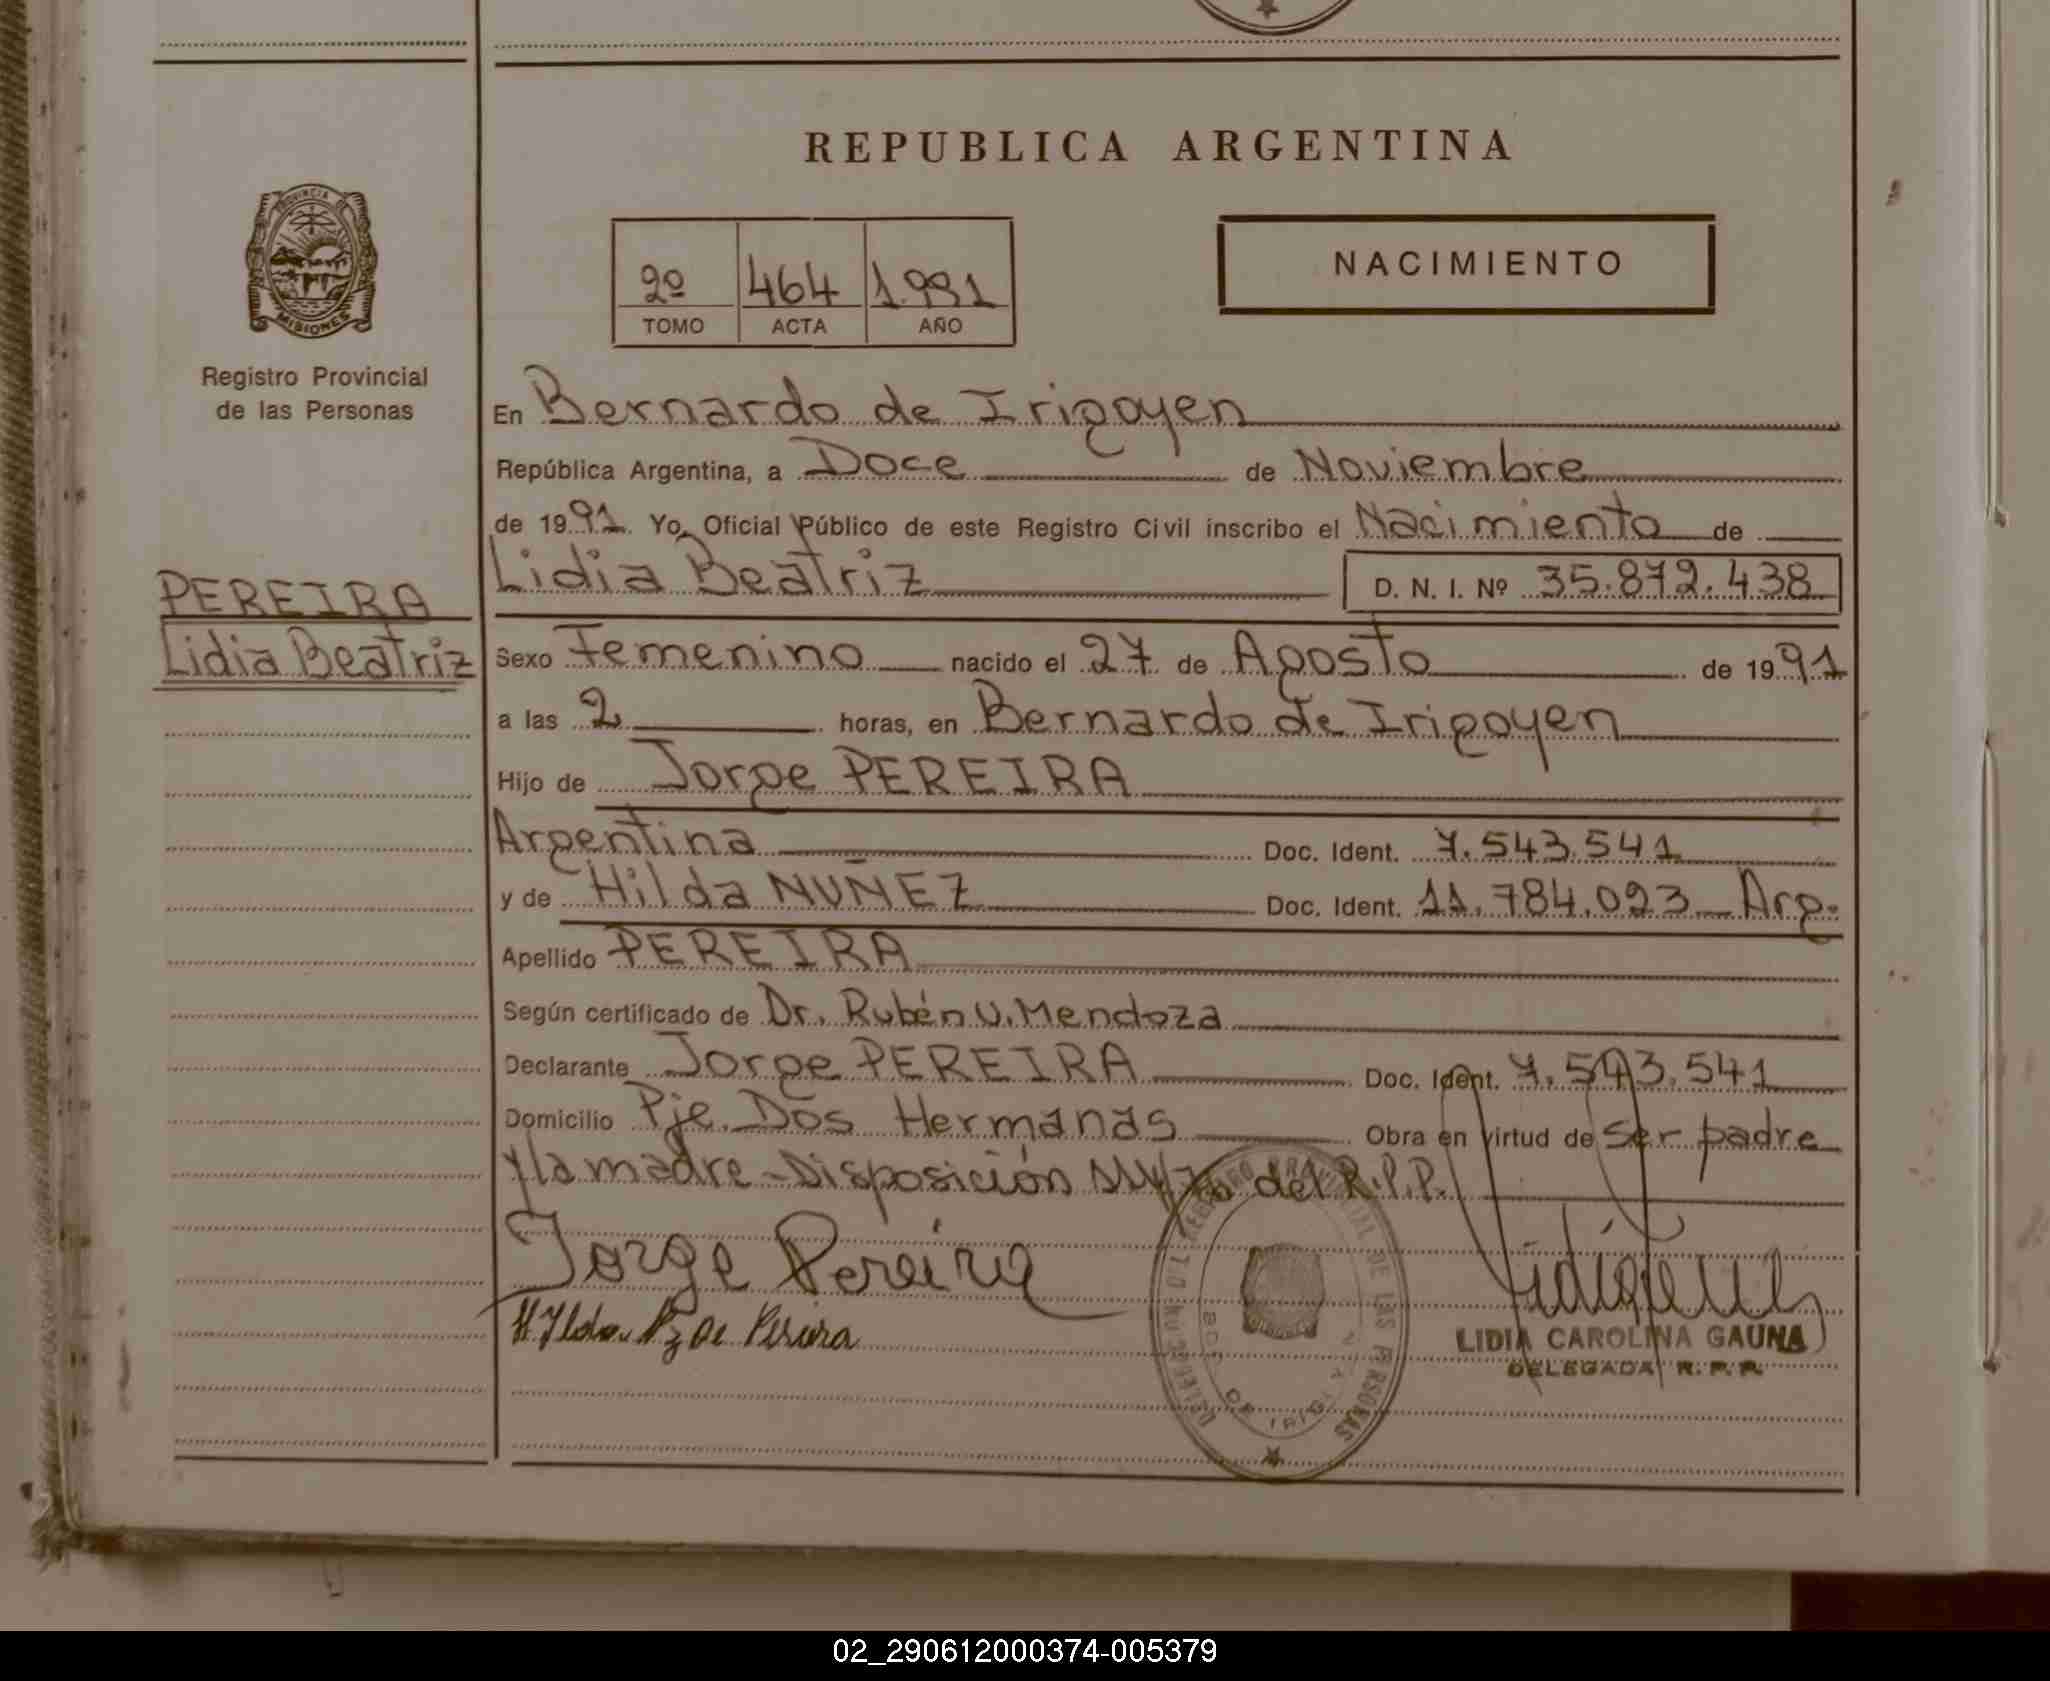 REPUBLICA ARGENTINA
PROVINCIA DE
MISIONES
Registro Provincial
de las Personas
2º 464 1.991
TOMO ACTA AÑO
NACIMIENTO
PEREIRA
Lidia Beatriz
En Bernardo de Irigoyen
República Argentina, a Doce de Noviembre
de 1991. Yo, Oficial Público de este Registro Civil inscribo el Nacimiento de
Lidia Beatriz D. N. I. Nº 35.872.438
Sexo Femenino nacido el 27 de Agosto de 1991
a las 2 horas, en Bernardo de Irigoyen
Hijo de Jorge PEREIRA
Argentina Doc. Ident. 7.543.541
y de Hilda NUÑEZ Doc. Ident. 11.784.023 Arg.
Apellido PEREIRA
Según certificado de Dr. Rubén U. Mendoza
Declarante Jorge PEREIRA Doc. Ident. 7.543.541
Domicilio Pje. Dos Hermanas Obra en virtud de ser padre
y la madre - Disposición del R.P.P.
Jorge Pereira
de Pereira
REGISTRO PROVINCIAL DE LAS PERSONAS
LIDIA CAROLINA GAUNA
DELEGADA R. P. P.
02_290612000374-005379